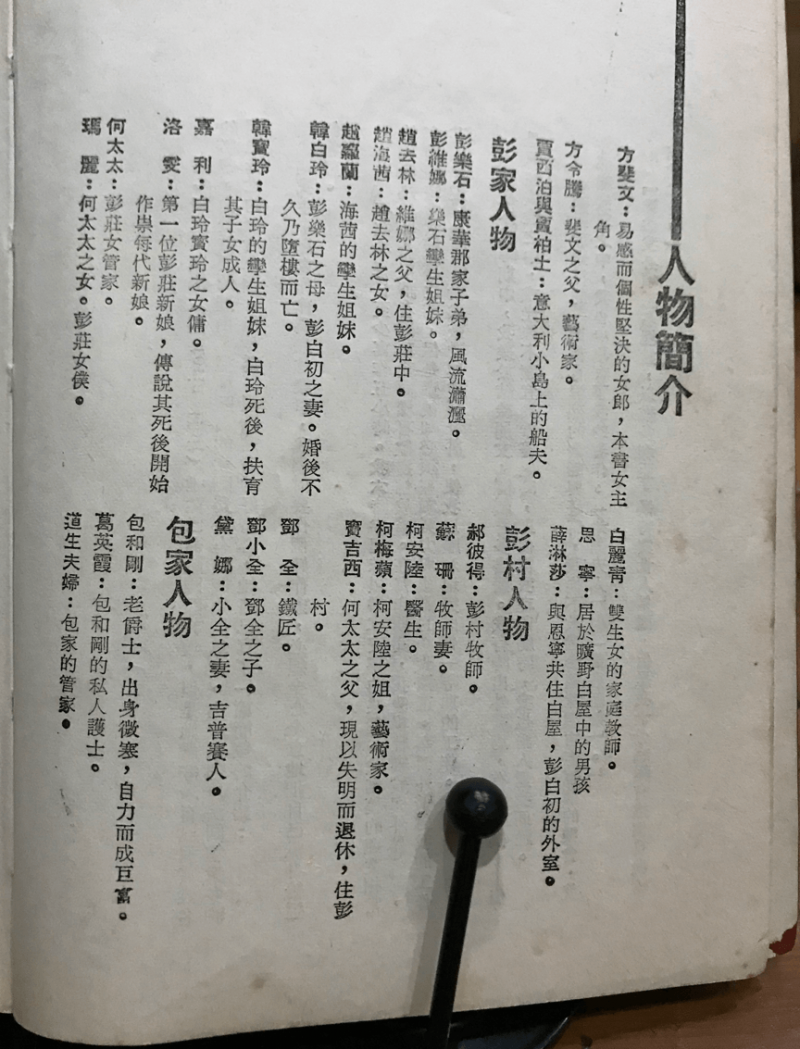 人物簡介
方斐文：易感而個性堅決的女郎，本書女主
角。
方令騰：斐文之父，藝術家。
賈西泊與賈柏士：意大利小島上的船夫。
彭家人物
彭樂石：康華郡家子弟，風流瀟灑。
彭維娜：樂石孿生姐妹。
趙去林：維娜之父，住彭莊中。
趙海茜：趙去林之女。
趙羅蘭：海茜的孿生姐妹。
韓白玲：彭樂石之母，彭白初之妻。婚後不
久乃墮樓而亡。
韓寶玲：白玲的孿生姐妹，白玲死後，扶育
其子女成人。
嘉　利：白玲寶玲之女傭。
洛　雯：第一位彭莊新娘，傳說其死後開始
作祟每代新娘。
何太太：彭莊女管家。
瑪　麗：何太太之女。彭莊女僕。
白麗青：雙生女的家庭教師。
恩　寧：居於曠野白屋中的男孩
薛淋莎：與恩寧共住白屋，彭白初的外室。
彭村人物
郝彼得：彭村牧師。
蘇　珊：牧師妻。
柯安陸：醫生。
柯梅蘋：柯安陸之姐，藝術家。
寶吉西：何太太之父，現以失明而退休，住彭
村。
鄧　全：鐵匠。
鄧小全：鄧全之子。
黛　娜：小全之妻，吉普賽人。
包家人物
包和剛：老爵士，出身微塞，自力而成巨富。
葛英霞：包和剛的私人護士。
道生夫婦：包家的管家。